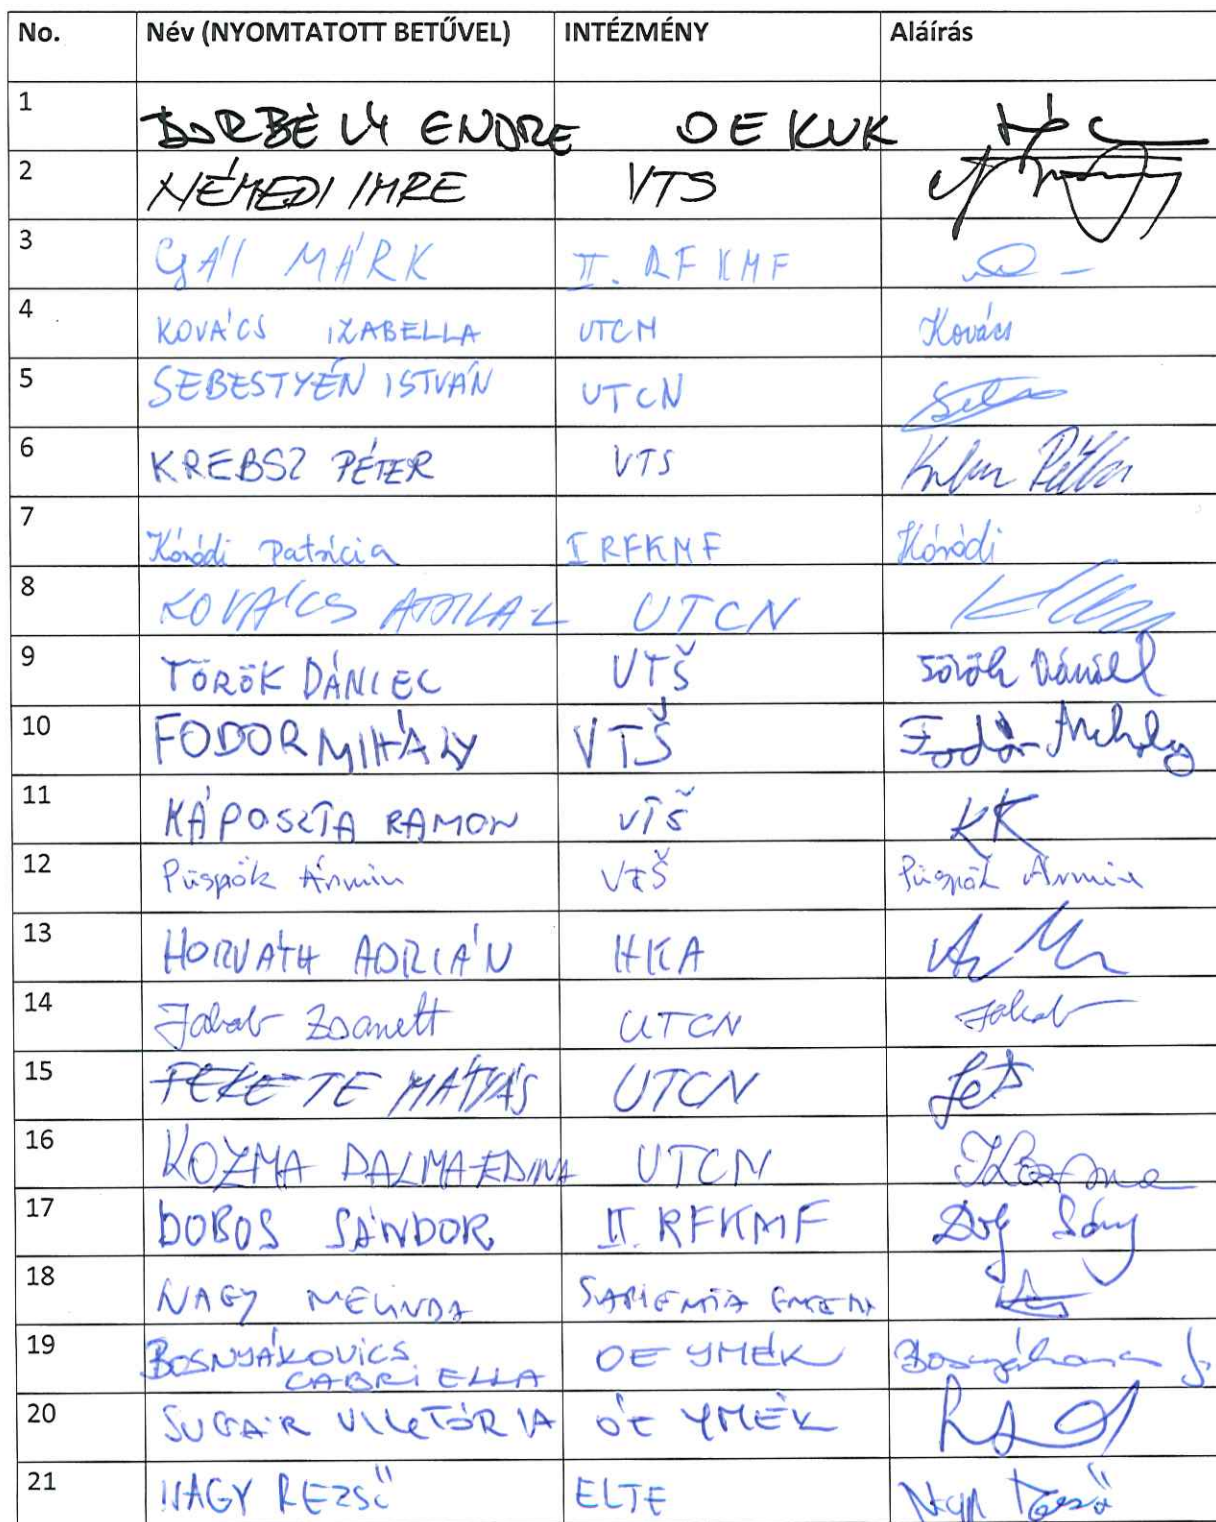 No. Név (NYOMTATOTT BETŰVEL) INTÉZMÉNY Aláírás
1 BORBÉLY ENDRE OE KVK
2 NÉMEDI IMRE VTS
3 GÁl MÁRK II. RFKMF
4 KOVÁCS IZABELLA UTCN Kovács
5 SEBESTYÉN ISTVÁN UTCN
6 KREBSZ PÉTER VTS
7 Kóródi Patrícia I RFKMF Kóródi
8 KOVÁCS ATTILA-L UTCN
9 TÖRÖK DÁNIEL VTŠ Török Dániel
10 FODOR MIHÁLY VTŠ Fodor Mihály
11 KÁPOSZTA RAMON VTŠ KK
12 Püspök Ármin VTŠ Püspök Ármin
13 HORVÁTH ADRIÁN HKA
14 Jakab Zsanett UTCN Jakab
15 FEKETE MÁTYÁS UTCN
16 KOZMA DALMA-EDINA UTCN Kozma
17 DOBOS SÁNDOR II. RFKMF
18 NAGY MELINDA SAPIENTIA EMTE
19 BOSNYÁKOVICS
GABRIELLA OE YMÉK
20 SUGÁR VIKTÓRIA ÓE YMÉK
21 NAGY REZSŐ ELTE Nagy Rezső